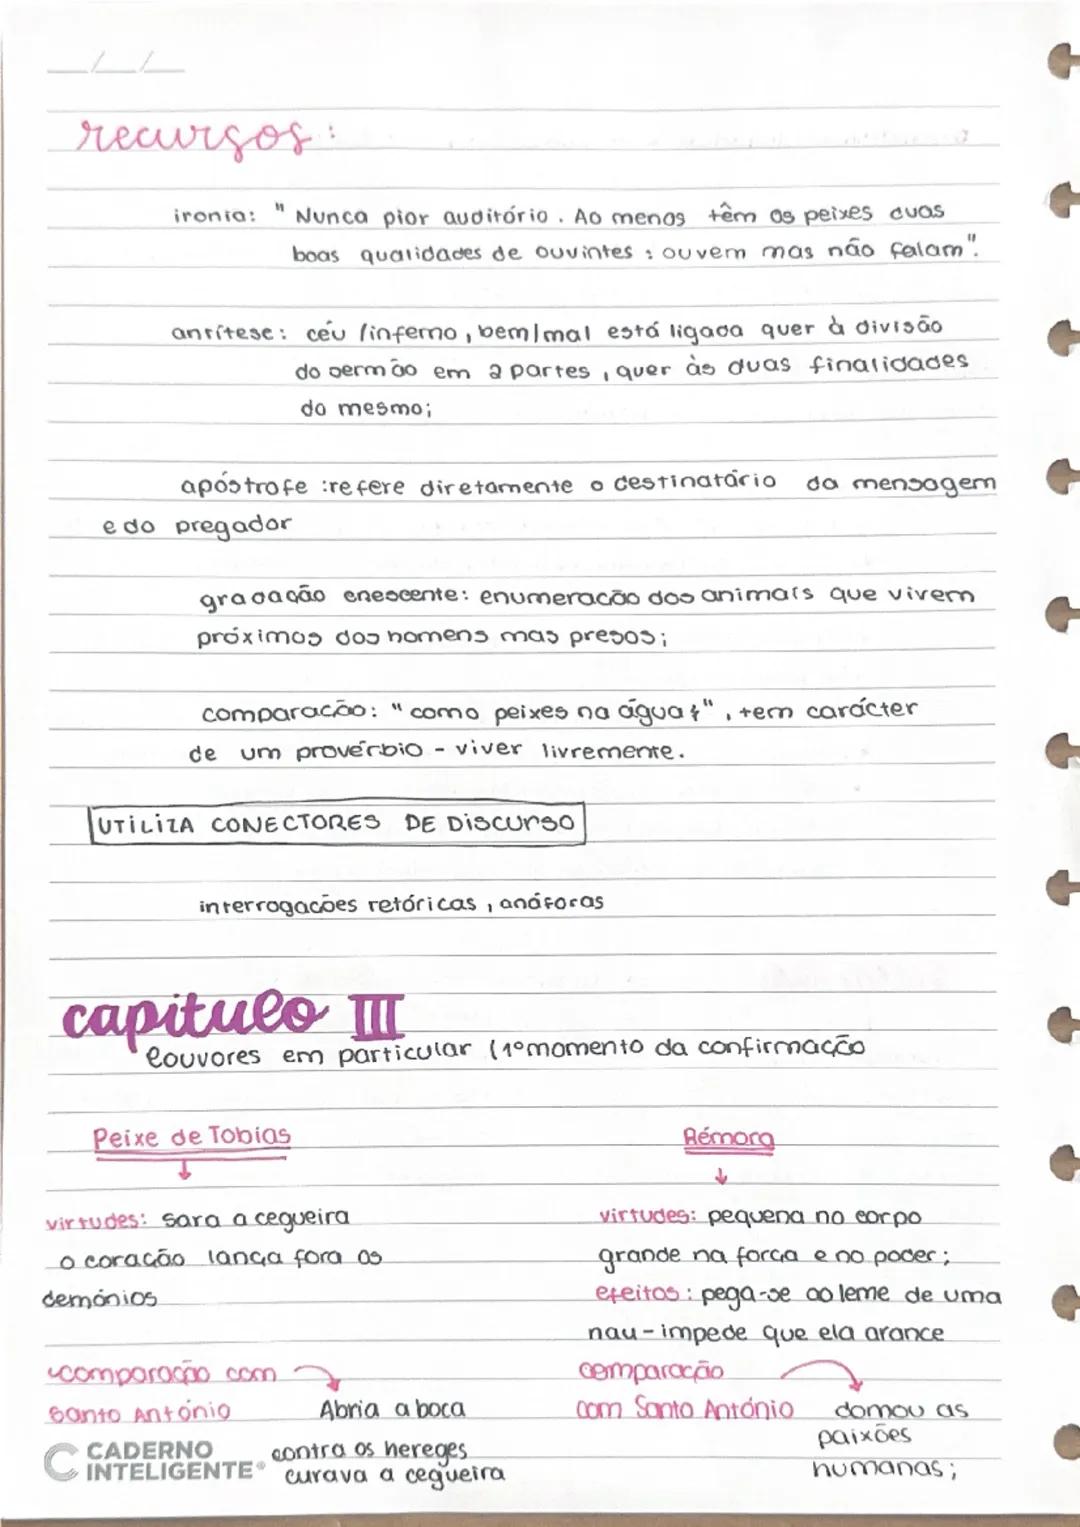 __/__/__
recursos:
ironia: "Nunca pior auditório. Ao menos têm os peixes duas
boas qualidades de ouvintes: ouvem mas não falam".
antítese: céu /inferno, bem/mal está ligada quer à divisão
do sermão em 2 partes, quer às duas finalidades
do mesmo;
apóstrofe: refere diretamente o destinatário da mensagem
e do pregador
gradação crescente: enumeração dos animais que vivem
próximos dos homens mas presos;
comparação: "como peixes na água", tem carácter
de um provérbio - viver livremente.
UTILIZA CONECTORES DE DISCURSO
interrogações retóricas, anáforas
capitulo III
louvores em particular (1º momento da confirmação
Peixe de Tobias Rémora
virtudes: sara a cegueira
o coração lança fora os
demónios
virtudes: pequena no corpo
grande na força e no poder;
efeitos: pega-se ao leme de uma
nau-impede que ela avance
comparação com
Santo António
Abria a boca
contra os hereges
curava a cegueira
comparação
com Santo António
domou as
paixões
humanas;
CADERNO
INTELIGENTE®